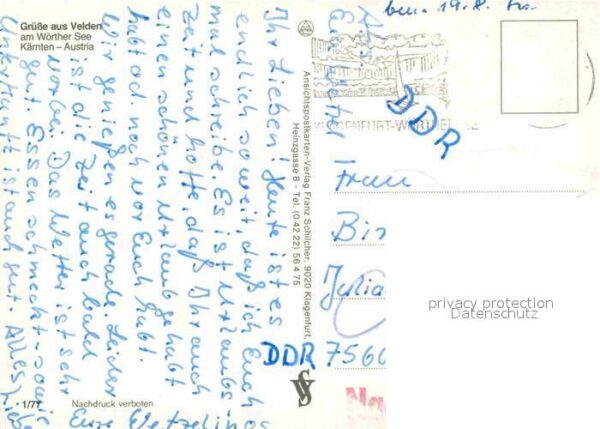 Grüße aus Velden
am Wörther See
Kärnten - Austria
Ihr Lieben! Heute ist es
endlich soweit, daß ich Euch
mal schreibe. Es ist Urlaubs
zeit und hoffe, daß Ihr auch
einen schönen Urlaub gehabt
habt od. noch vor Euch habt.
Wir genießen es gerade. Leider
ist die Zeit auch bald
vorbei. Das Wetter ist sehr
gut. Essen schmeckt - sowie
Unterkunft ist auch gut. Alles Liebe
Eure
1/77
Nachdruck verboten
Ansichtspostkarten-Verlag Franz Schilcher, 9020 Klagenfurt,
Heinzgasse 8 - Tel. (0 42 22) 56 4 75
19.8.
KLAGENFURT-WÖRTHERSEE
DDR
Frau
Bi
Julia
DDR 7560
privacy protection
Datenschutz